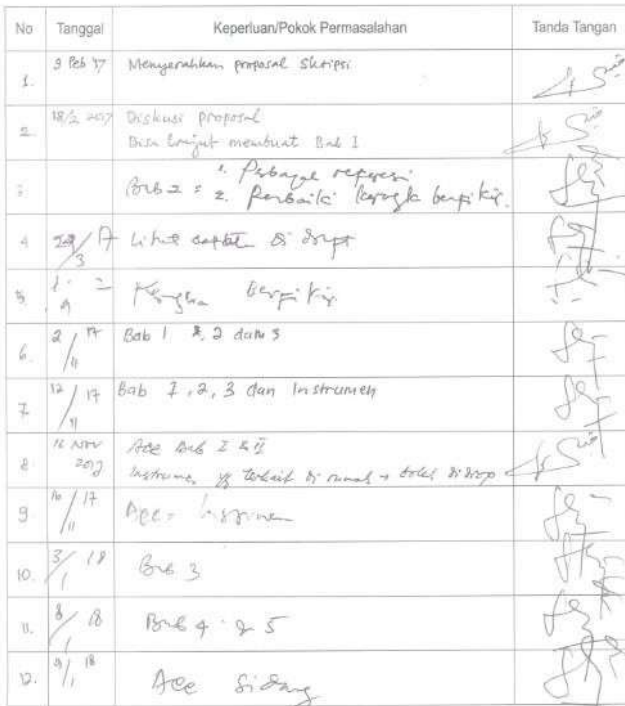 No Tanggal Keperluan/Pokok Permasalahan Tanda Tangan
1. 9 Feb '17 Menyerahkan proposal Skripsi
2. 18/2 2017 Diskusi proposal
Bisa lanjut membuat Bab I
3 Bab 2 : 1. Perbanyak referensi
2. Perbaiki kerangka berpikir.
4 29/3 17 Lihat catatan di draft
5. Kerangka berpikir
6. 2/11 17 Bab 1, 2 dan 3
7. 12/11 17 Bab 1, 2, 3 dan Instrumen
8 16 Nov 2017 Acc Bab I & II
Instrumen yg terkait di rumah → boleh di drop
9 16/11 17 Acc Instrumen
10. 3/1 18 Bab 3
11. 8/1 18 Bab 4 & 5
12. 9/1 18 Acc Sidang